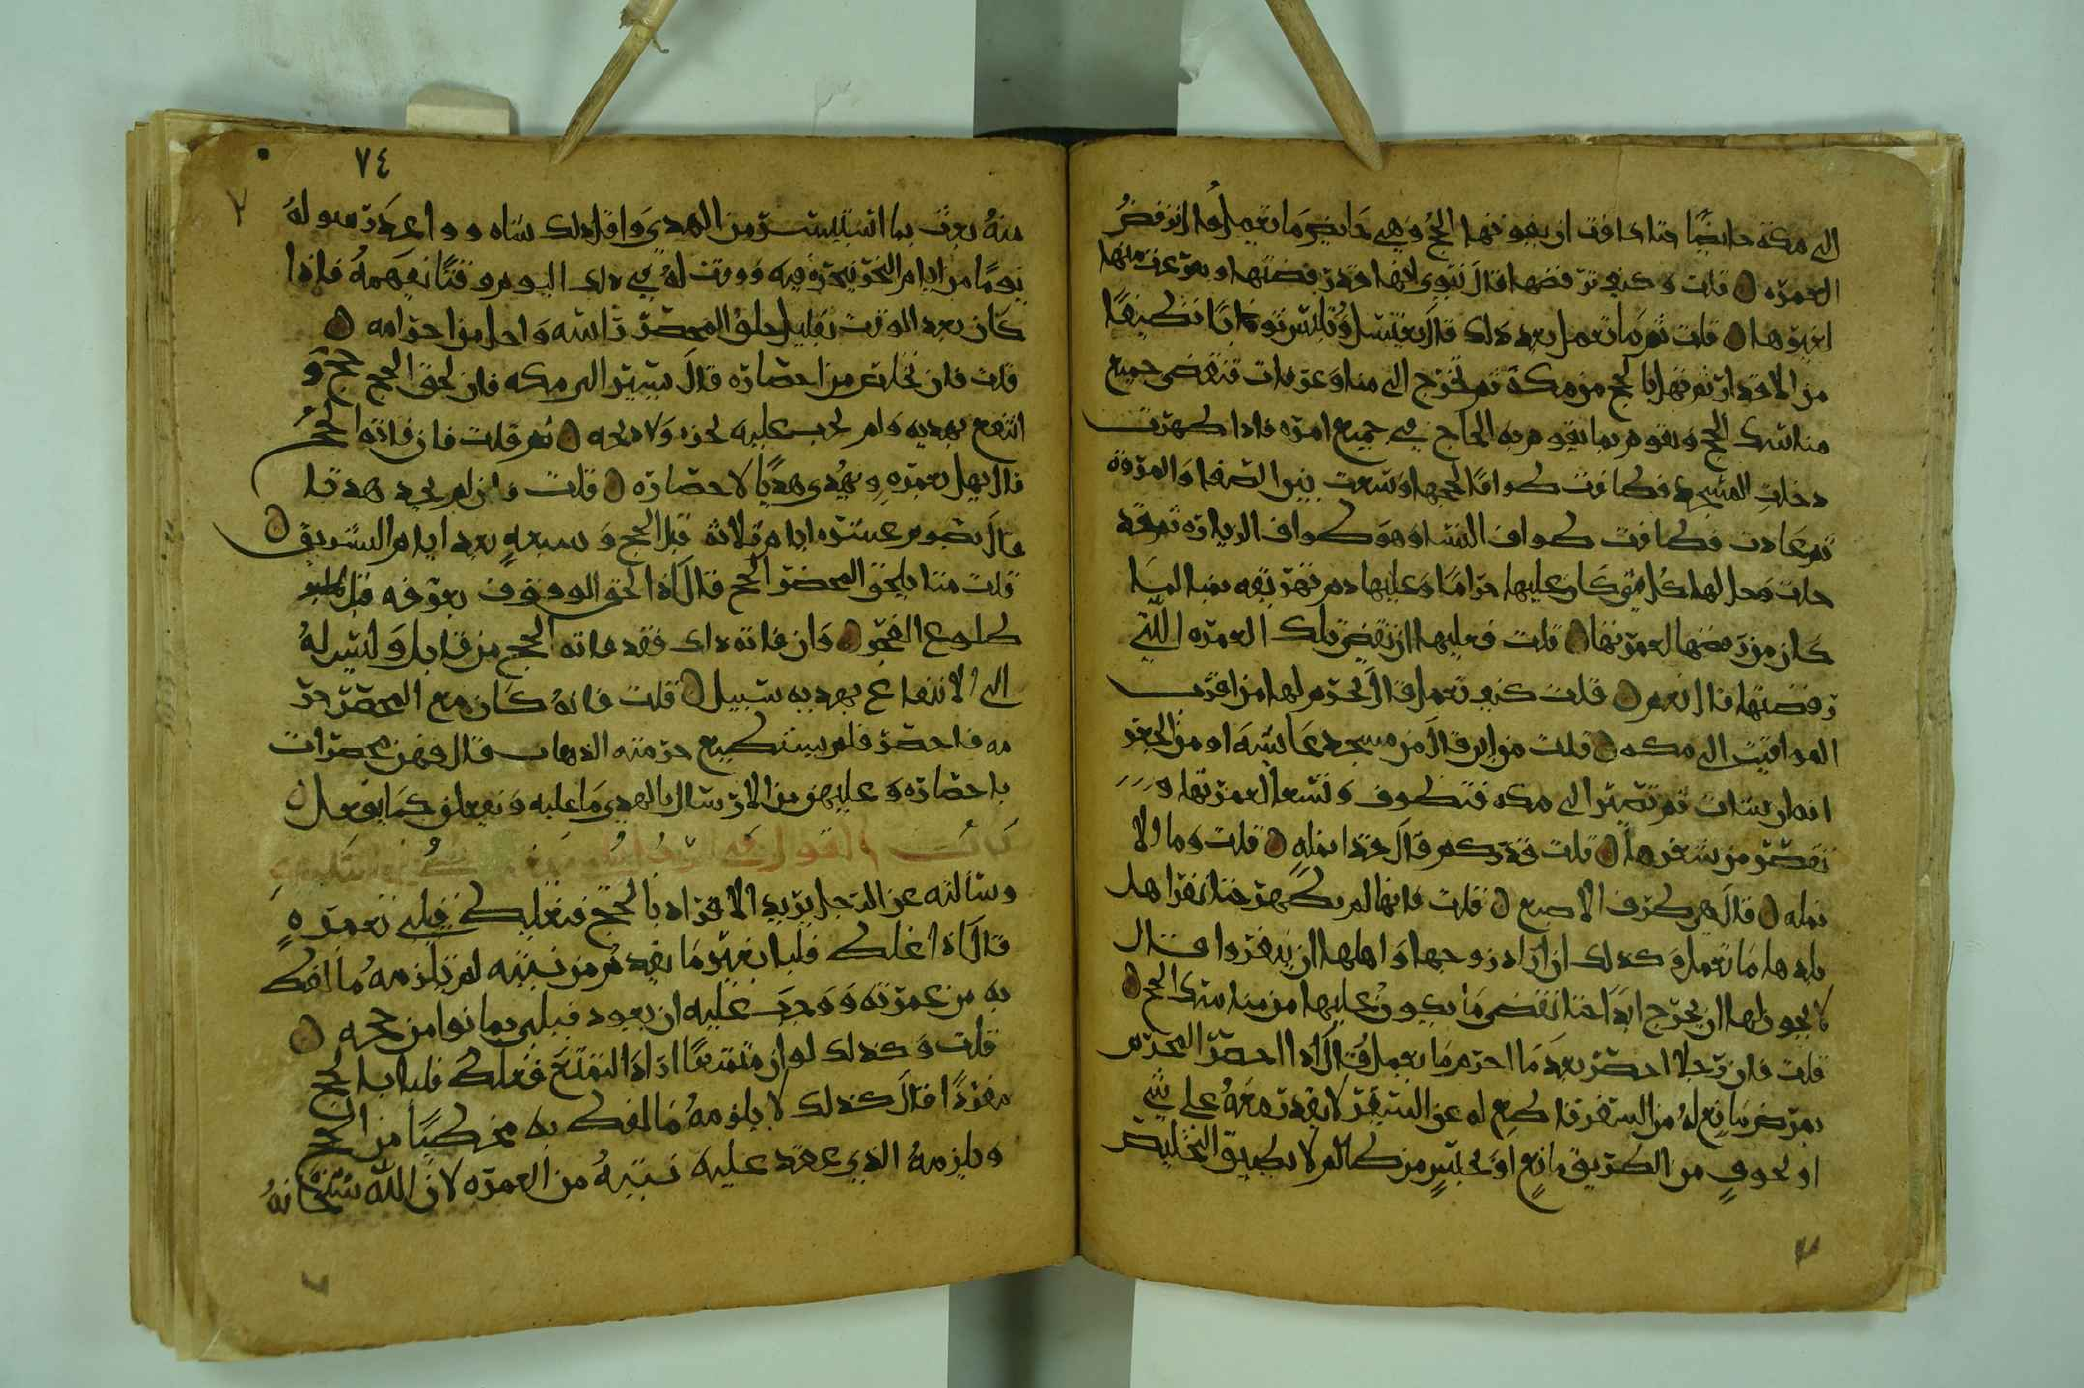 الى مكة حايضا متا خافت ان يفوتها الحج وهي حايض ما تعمل قال ترفض
العمره قلت وكيف ترفضها قال تنوي انها قد رفضتها وتفرغت منها
لغيرها قلت ثم ما تعمل بعد ذلك قال تغتسل وتلبس ثوبا نظيفا
ثم تهل بالحج من مكة ثم تخرج الى منا وعرفات فتقضي جميع
مناسك الحج وتقوم بما يقوم به الحاج في جميع امره فاذا طهرت
دخلت المسجد فطافت طوافا لحجها وسعت بين الصفا والمروة
ثم عادت فطافت طواف النسا وهو طواف الزياره ثم قد
حلت وحل لها كل شي كان عليها حراما وعليها دم تهريقه بمنا لما
كان من رفضها لعمرتها قلت فعليها ان تقضي تلك العمره اللتي
رفضتها قال نعم قلت كيف تعمل قال تحرم لها من اقرب
المواقيت الى مكه قلت من اين قال من مسجد عايشه او من الجعر
انه ان شات ثم تصير الى مكه فتطوف وتسعا لعمرتها و
تقصر من شعرها قلت قدر كم قال قدر انمله قلت وما الا
نمله قال هي طرف الاصبع قلت فانها لم تطهر حتا نفر اهل
بلدها ما تعمل وكذلك ان اراد زوجها واهلها ان ينفروا قال
لا يجوز لها ان تخرج ابدا حتا تقضي ما يكون عليها من مناسك الحج
قلت فان رجلا احصر بعد ما احرم ما يعمل قال اذا احصر المحرم
بمرض مانع له من السفر قاطع له عن السير لا يقدر معه على شي
او بخوف من الطريق مانع او بحبس من ظالم لا يطيق التخليص
٧٤
منه بعث بما استيسر من الهدي واقل ذلك شاه وواعد رسوله
يوما من ايام النحر ينحره فيه ووقت له في ذلك اليوم وقتا يفهمه فاذا
كان بعد الوقت بقليل حلق المحصر راسه واحل من احرامه
قلت فان تخلص من احصاره قال يسير الى مكه فان لحق الحج حج و
انتفع بهديه ولم يجب عليه نحره ولا ذبحه ثم قلت فان فاته الحج
قال يهل بعمره ويهدي هديا لاحصاره قلت فان لم يجد هديا
قال يصوم عشره ايام ثلاثه قبل الحج وسبعه بعد ايام التشريق
قلت متا يلحق المحصر الحج قال اذا لحق الوقوف بعرفه قبل
طلوع الفجر وان فاته ذلك فقد فاته الحج من قابل وليس له
الى الانتفاع بهديه سبيل قلت فانه كان مع المحصر حر
مه فاحصر فلم يستطيع حرمته الذهاب قال فهن محصرات
باحصاره وعليهن من الارسال بالهدي ما عليه ويفعلن كما يفعل
باب القول في
وسالته عن الرجل يريد الافراد بالحج فيغلط فيلبي بعمره
قال اذا غلط فلبا بغير ما يقدم من نيته لم يلزمه ما لفظ
به من عمرته ووجب عليه ان يعود فيلبي بما نوا من حجه
قلت وكذلك لو ان متمتعا اراد التمتع فغلط فلبا بالحج
مفردا قال كذلك لا يلزمه ما لفظ به مخطيا من الحج
ويلزمه الذي عقد عليه نيته من العمره لان الله سبحانه